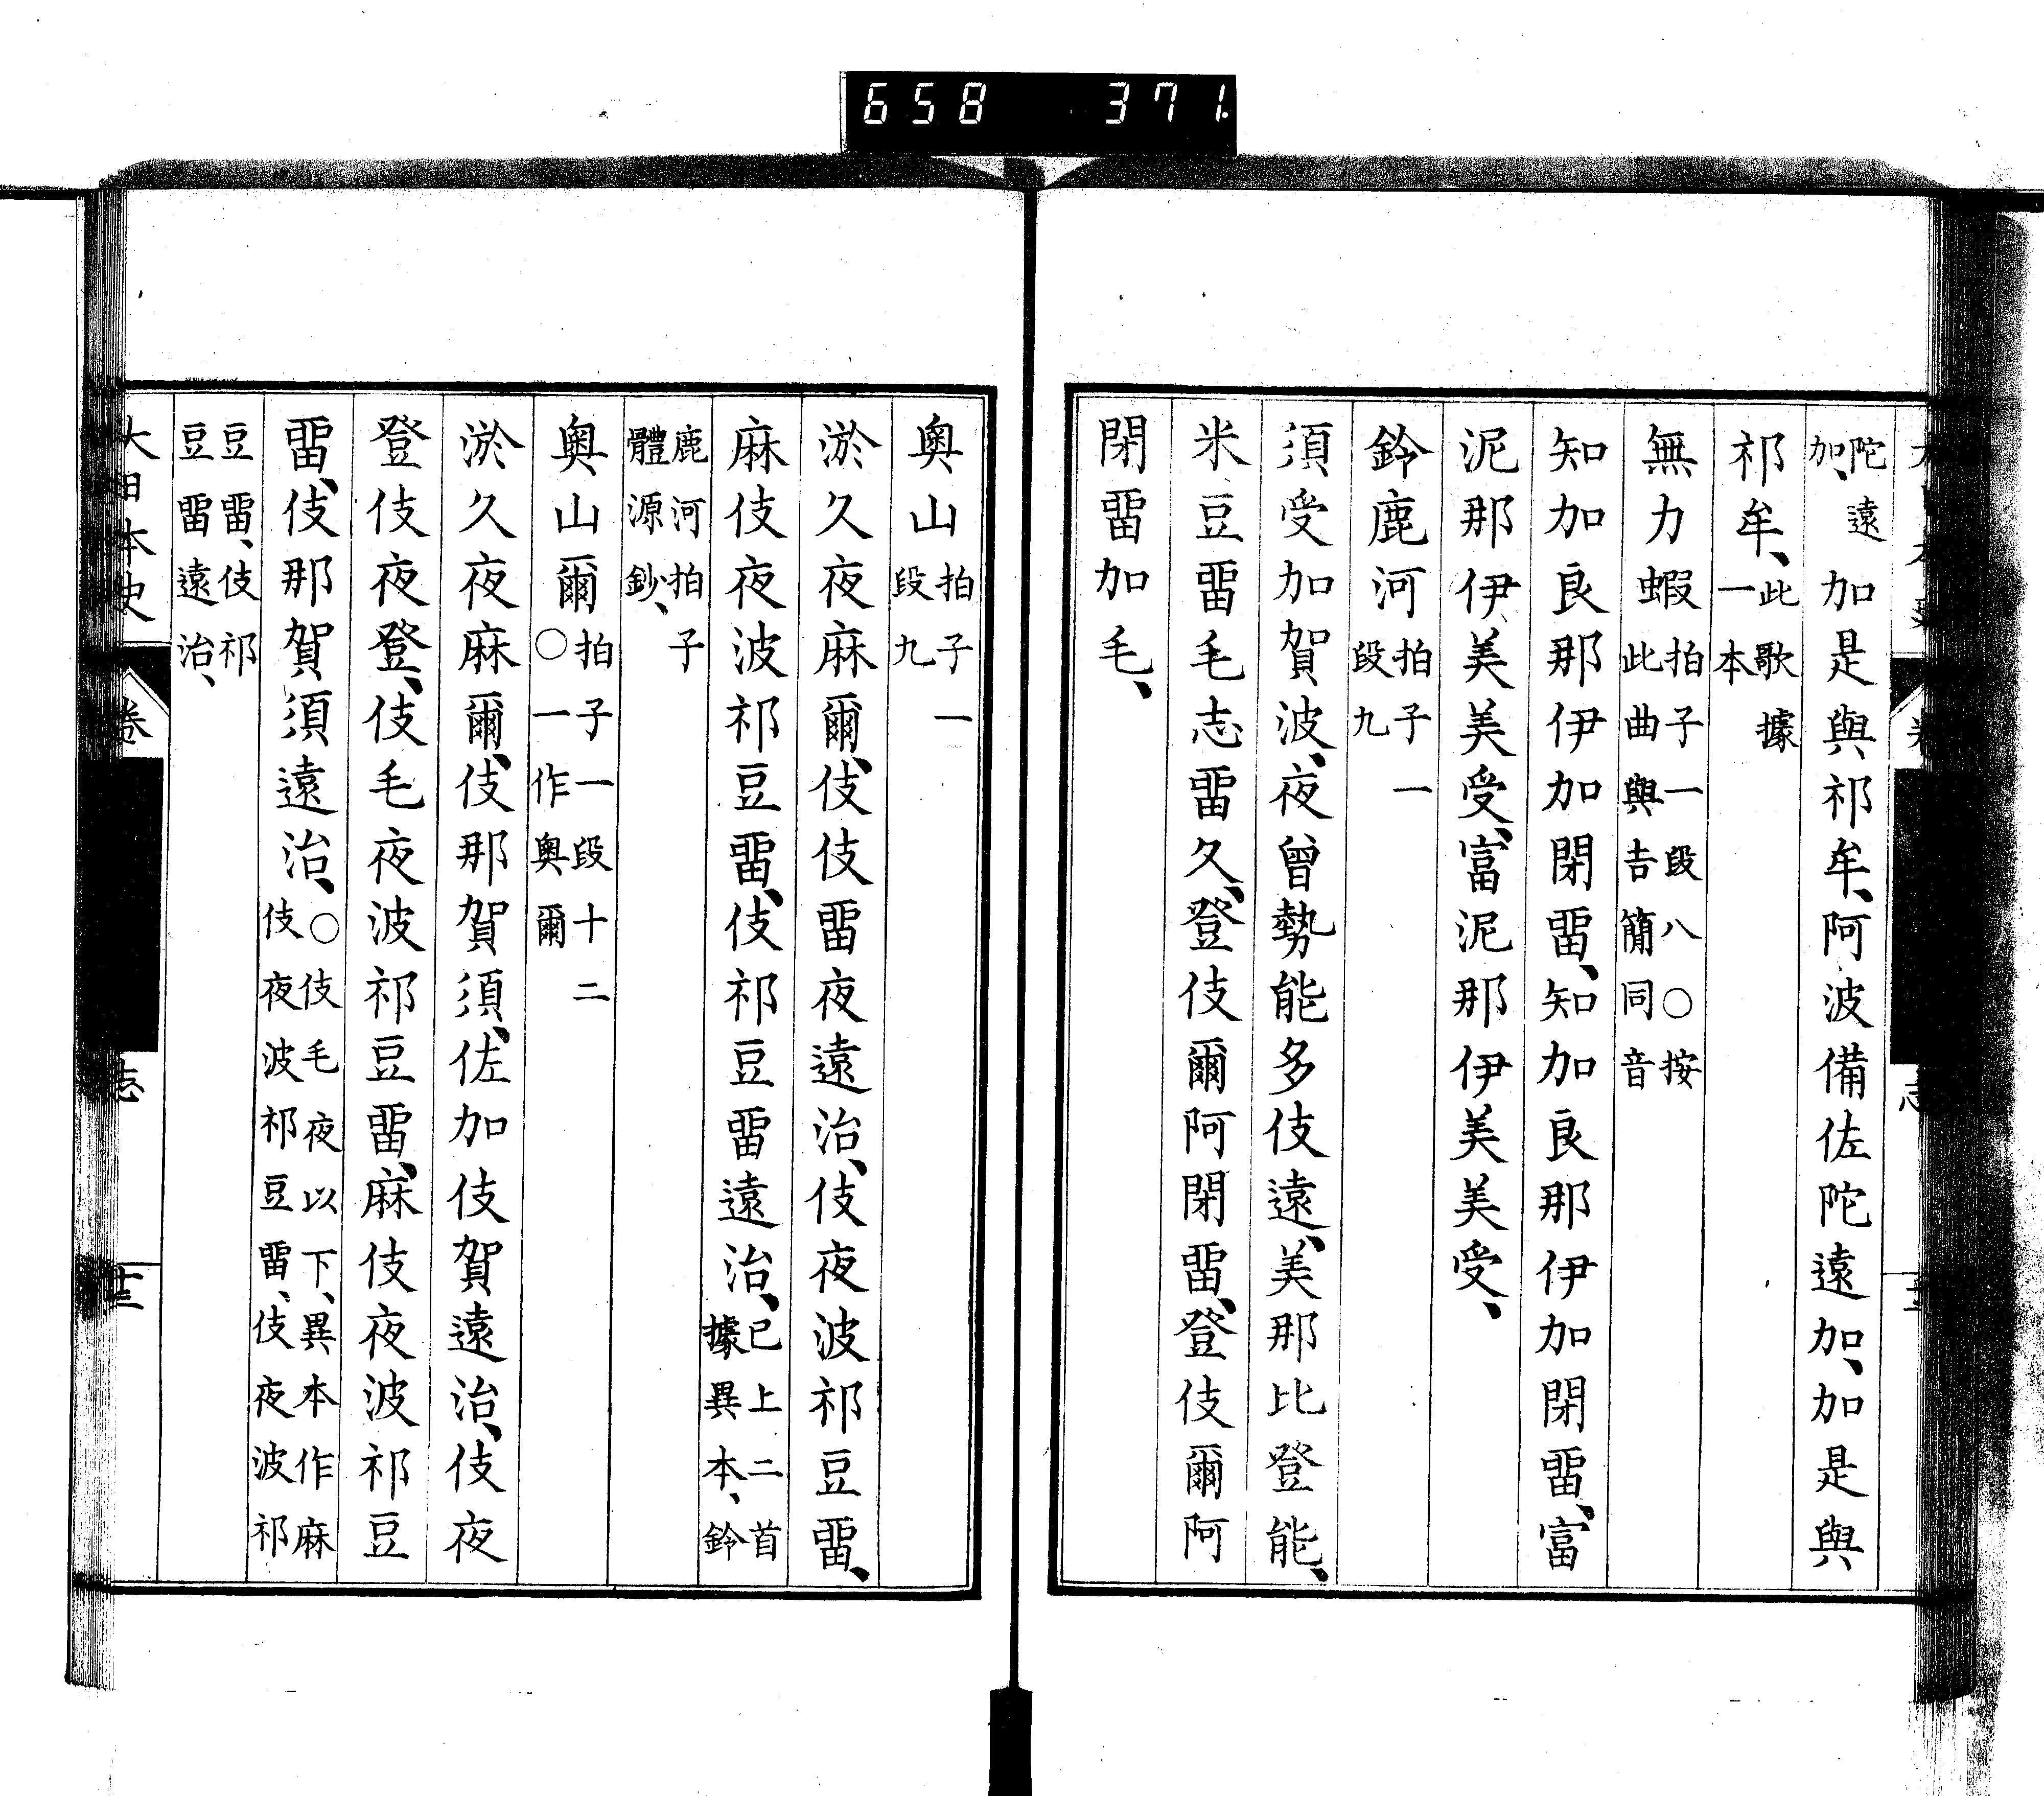 658 371
陀遠加、加是與祁牟、阿波備佐陀遠加、加是與
祁牟、此歌據一本
無力蝦拍子一段八〇按此曲與吉簡同音
知加良那伊加閇畱、知加良那伊加閇畱、富
泥那伊美美受、富泥那伊美美受、
鈴鹿河拍子一段九
須受加賀波、夜曾勢能多伎遠、美那比登能、
米豆畱毛志畱久、登伎爾阿閇畱、登伎爾阿
閇畱加毛、
奧山拍子一段九
淤久夜麻爾、伎伎畱夜遠治、伎夜波祁豆畱、
麻伎夜波祁豆畱、伎祁豆畱遠治、已上二首據異本、鈴
鹿河拍子體源鈔、
奧山爾拍子一段十二〇一作奧爾
淤久夜麻爾、伎那賀須、佐加伎賀遠治、伎夜
登伎夜登、伎毛夜波祁豆畱、麻伎夜波祁豆
畱、伎那賀須遠治、〇伎毛夜以下、異本作麻伎夜波祁豆畱、伎夜波祁
豆畱、伎祁豆畱遠治、
大日本史 卷 志 十三